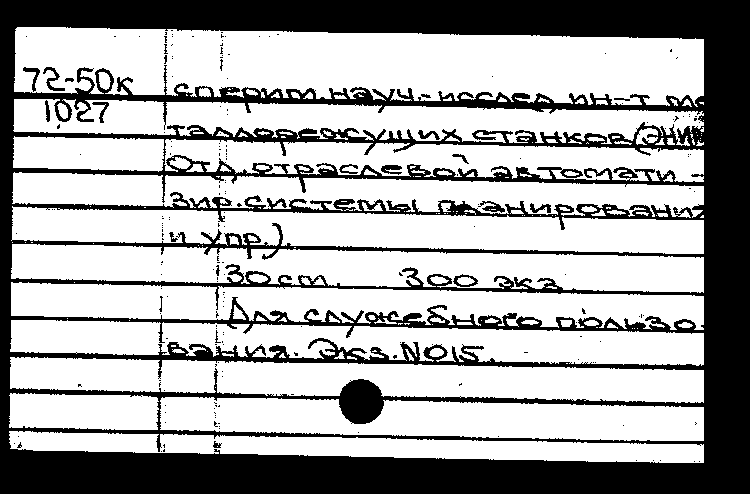 72-50к сперим. науч.-исслед. ин-т ме
1027
таллорежущих станков (ЭНИМ
Отд. отраслевой автомати-
зир. системы планирования
и упр.).
30 cm. 300 экз.
Для служебного пользо-
вания. Экз. №015.